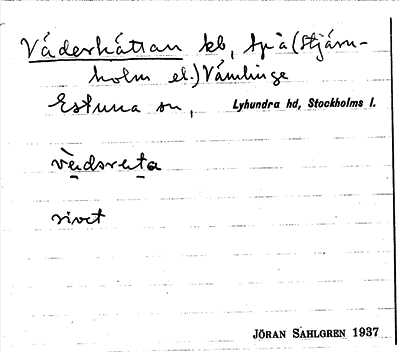 Väderhättan kb, hpå (Stjärn-
holm el.) Vämlinge
Estuna sn, Lyhundra hd, Stockholms l.
rivet
JÖRAN SAHLGREN 1937